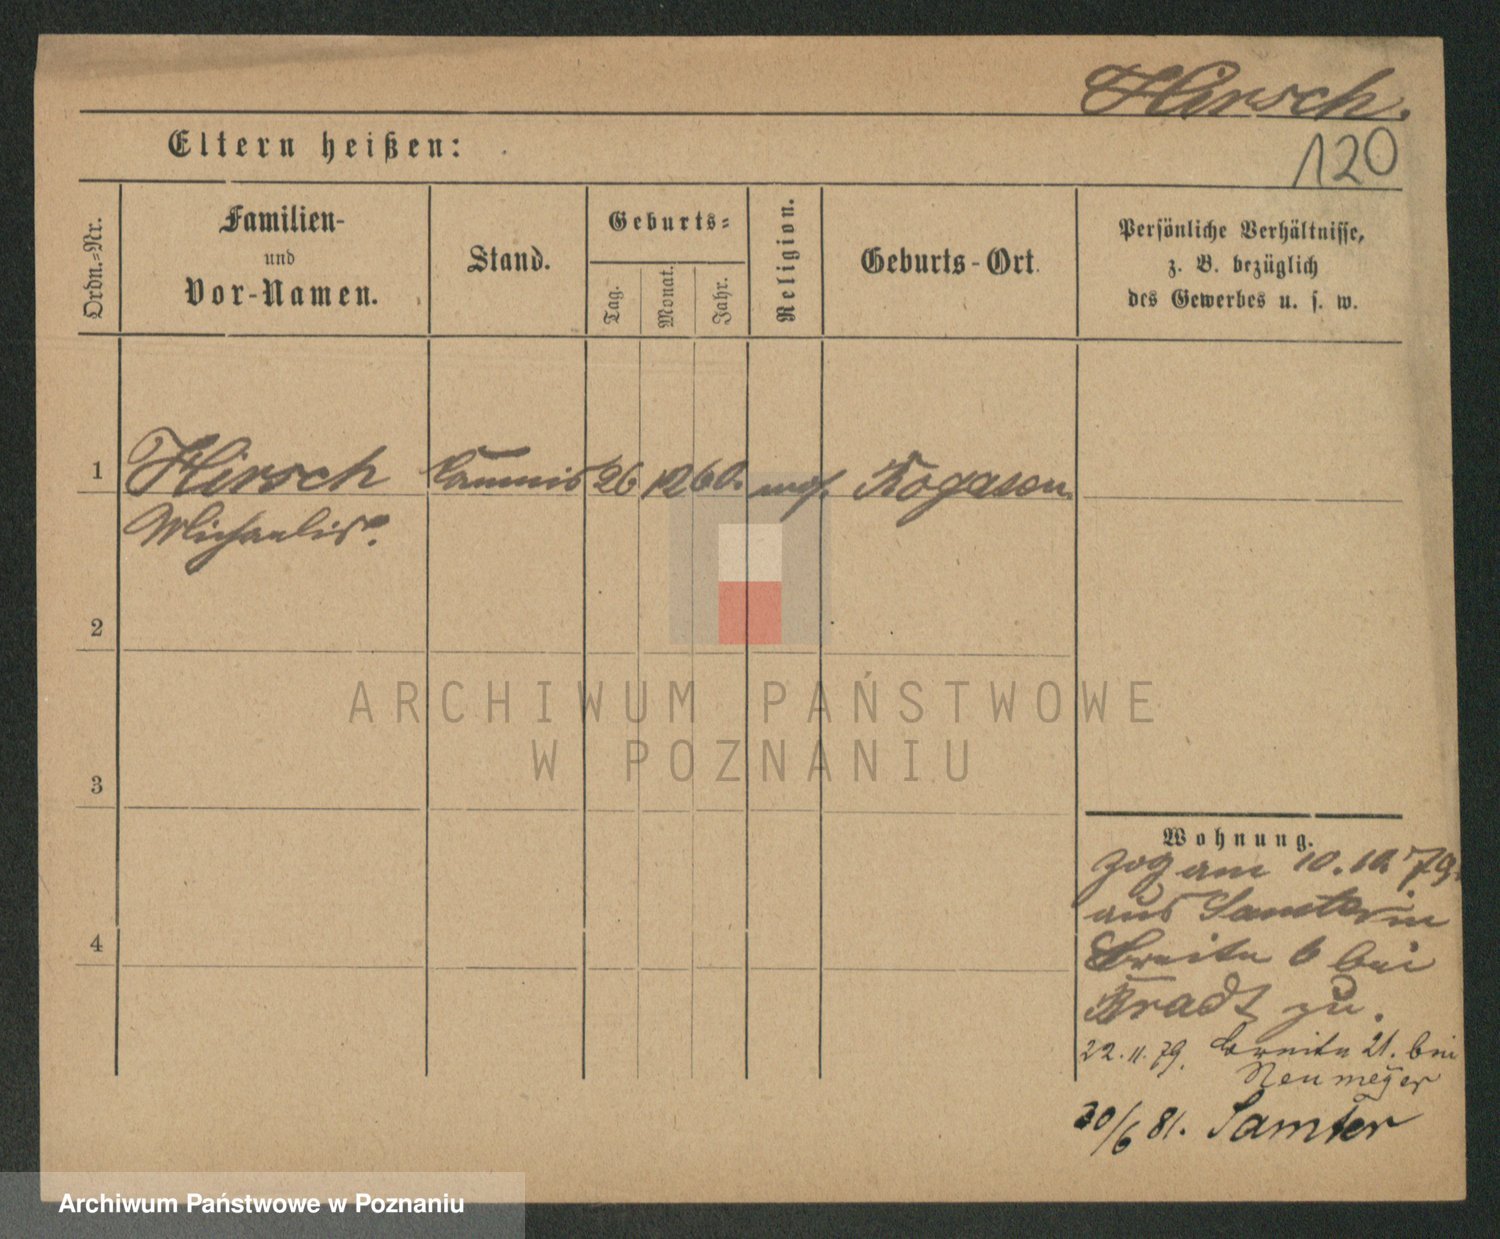 Hirsch.
120
Eltern heißen:
Ordn.=Nr.
Familien-
und
Vor-Namen.
Stand.
Geburts=
Tag.
Monat.
Jahr.
Religion.
Geburts-Ort.
Persönliche Verhältnisse,
z. B. bezüglich
des Gewerbes u. s. w.
1 Hirsch Commis 26 12 60. mos. Rogasen.
Michaelis.
2
3
4
Wohnung.
zog am 10. 10. 79.
aus Samter in
Breite 6 bei
Bradt zu.
22. 11. 79. Breite 21. bei
Neumeyer
30/6 81. Samter
ARCHIWUM PAŃSTWOWE
W POZNANIU
Archiwum Państwowe w Poznaniu